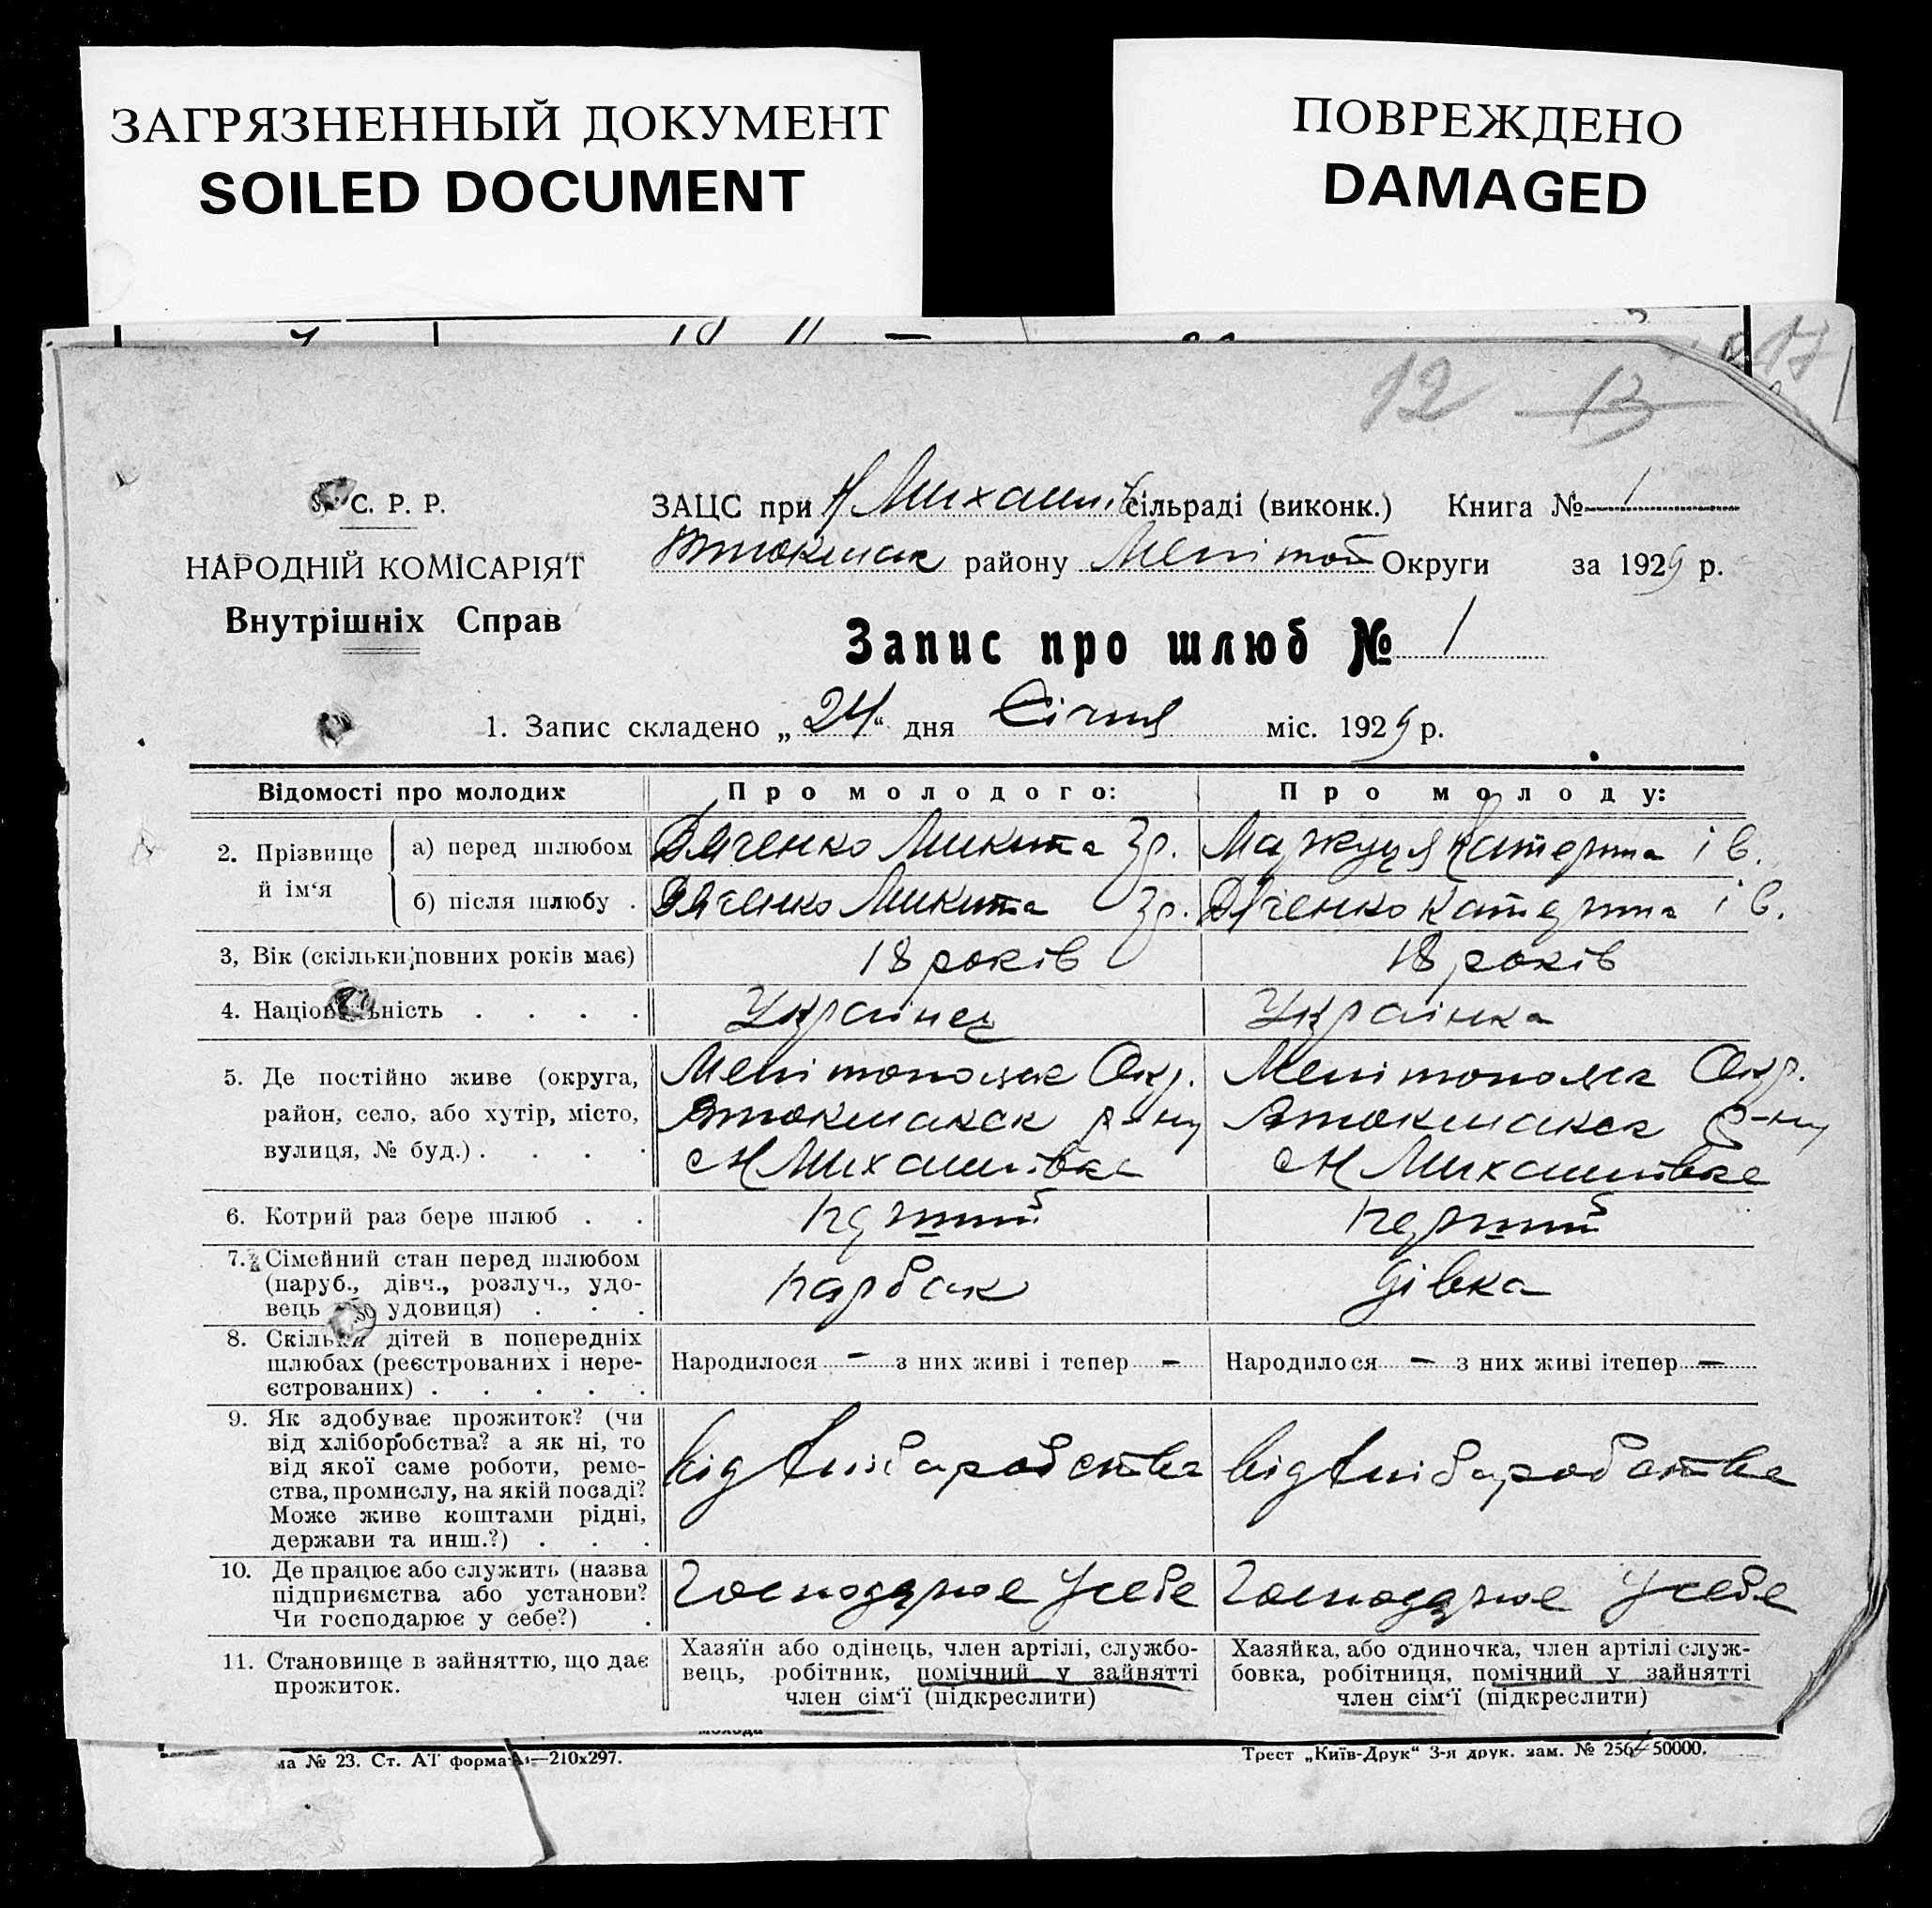 ЗАГРЯЗНЕННЫЙ ДОКУМЕНТ
SOILED DOCUMENT
ПОВРЕЖДЕНО
DAMAGED
12 13
17
С. Р. Р.
НАРОДНІЙ КОМІСАРІЯТ
Внутрішніх Справ
ЗАЦС при Н Михайлів сільраді (виконк.) Книга № 1
Втокмак району Меліто́п Округи за 1929 р.
Запис про шлюб № 1
1. Запис складено „24“ дня Січня міс. 1929 р.
Відомості про молодих
Про молодого:
Про молоду:
2. Прізвище й ім‘я
а) перед шлюбом
Дяченко Микита Гр.
Катерина Ів.
б) після шлюбу .
Дяченко Микита Гр.
Дяченко Катерина Ів.
3, Вік (скільки повних років має)
18 років
18 років
4. Націон ьність . . . .
Українец
Українка
5. Де постійно живе (округа,
район, село, або хутір, місто,
вулиця, № буд.) . . . .
Мелітопольск Окр.
Втокмакск р-ну
с Н Михайлівка
Мелітопольск Окр.
Втокмакск р-ну
с Н Михайлівка
6. Котрий раз бере шлюб . .
перший
перший
7. Сімейний стан перед шлюбом
(паруб., дівч., розлуч., удо-
вець удовиця) . . .
парбак
дівка
8. Скільки дітей в попередніх
шлюбах (реєстрованих і нере-
єстрованих) . . . . .
Народилося — з них живі і тепер —
Народилося — з них живі ітепер —
9. Як здобуває прожиток? (чи
від хліборобства? а як ні, то
від якої саме роботи, реме-
ства, промислу, на якій посаді?
Може живе коштами рідні,
держави та инш.?) . . .
від хліборобства
від хліборобства
10. Де працює або служить (назва
підприємства або установи?
Чи господарює у себе?) .
Господарює у себе
Господарює у себе
11. Становище в зайняттю, що дає
прожиток.
Хазяїн або одінець, член артілі, службо-
вець, робітник, помічний у зайнятті
член сім‘ї (підкреслити)
Хазяйка, або одиночка, член артілі служ-
бовка, робітниця, помічний у зайнятті
член сім‘ї (підкреслити)
№ 23. Ст. АТ форма —210х297.
Трест „Київ-Друк“ 3-я друк. зам. № 256 50000.